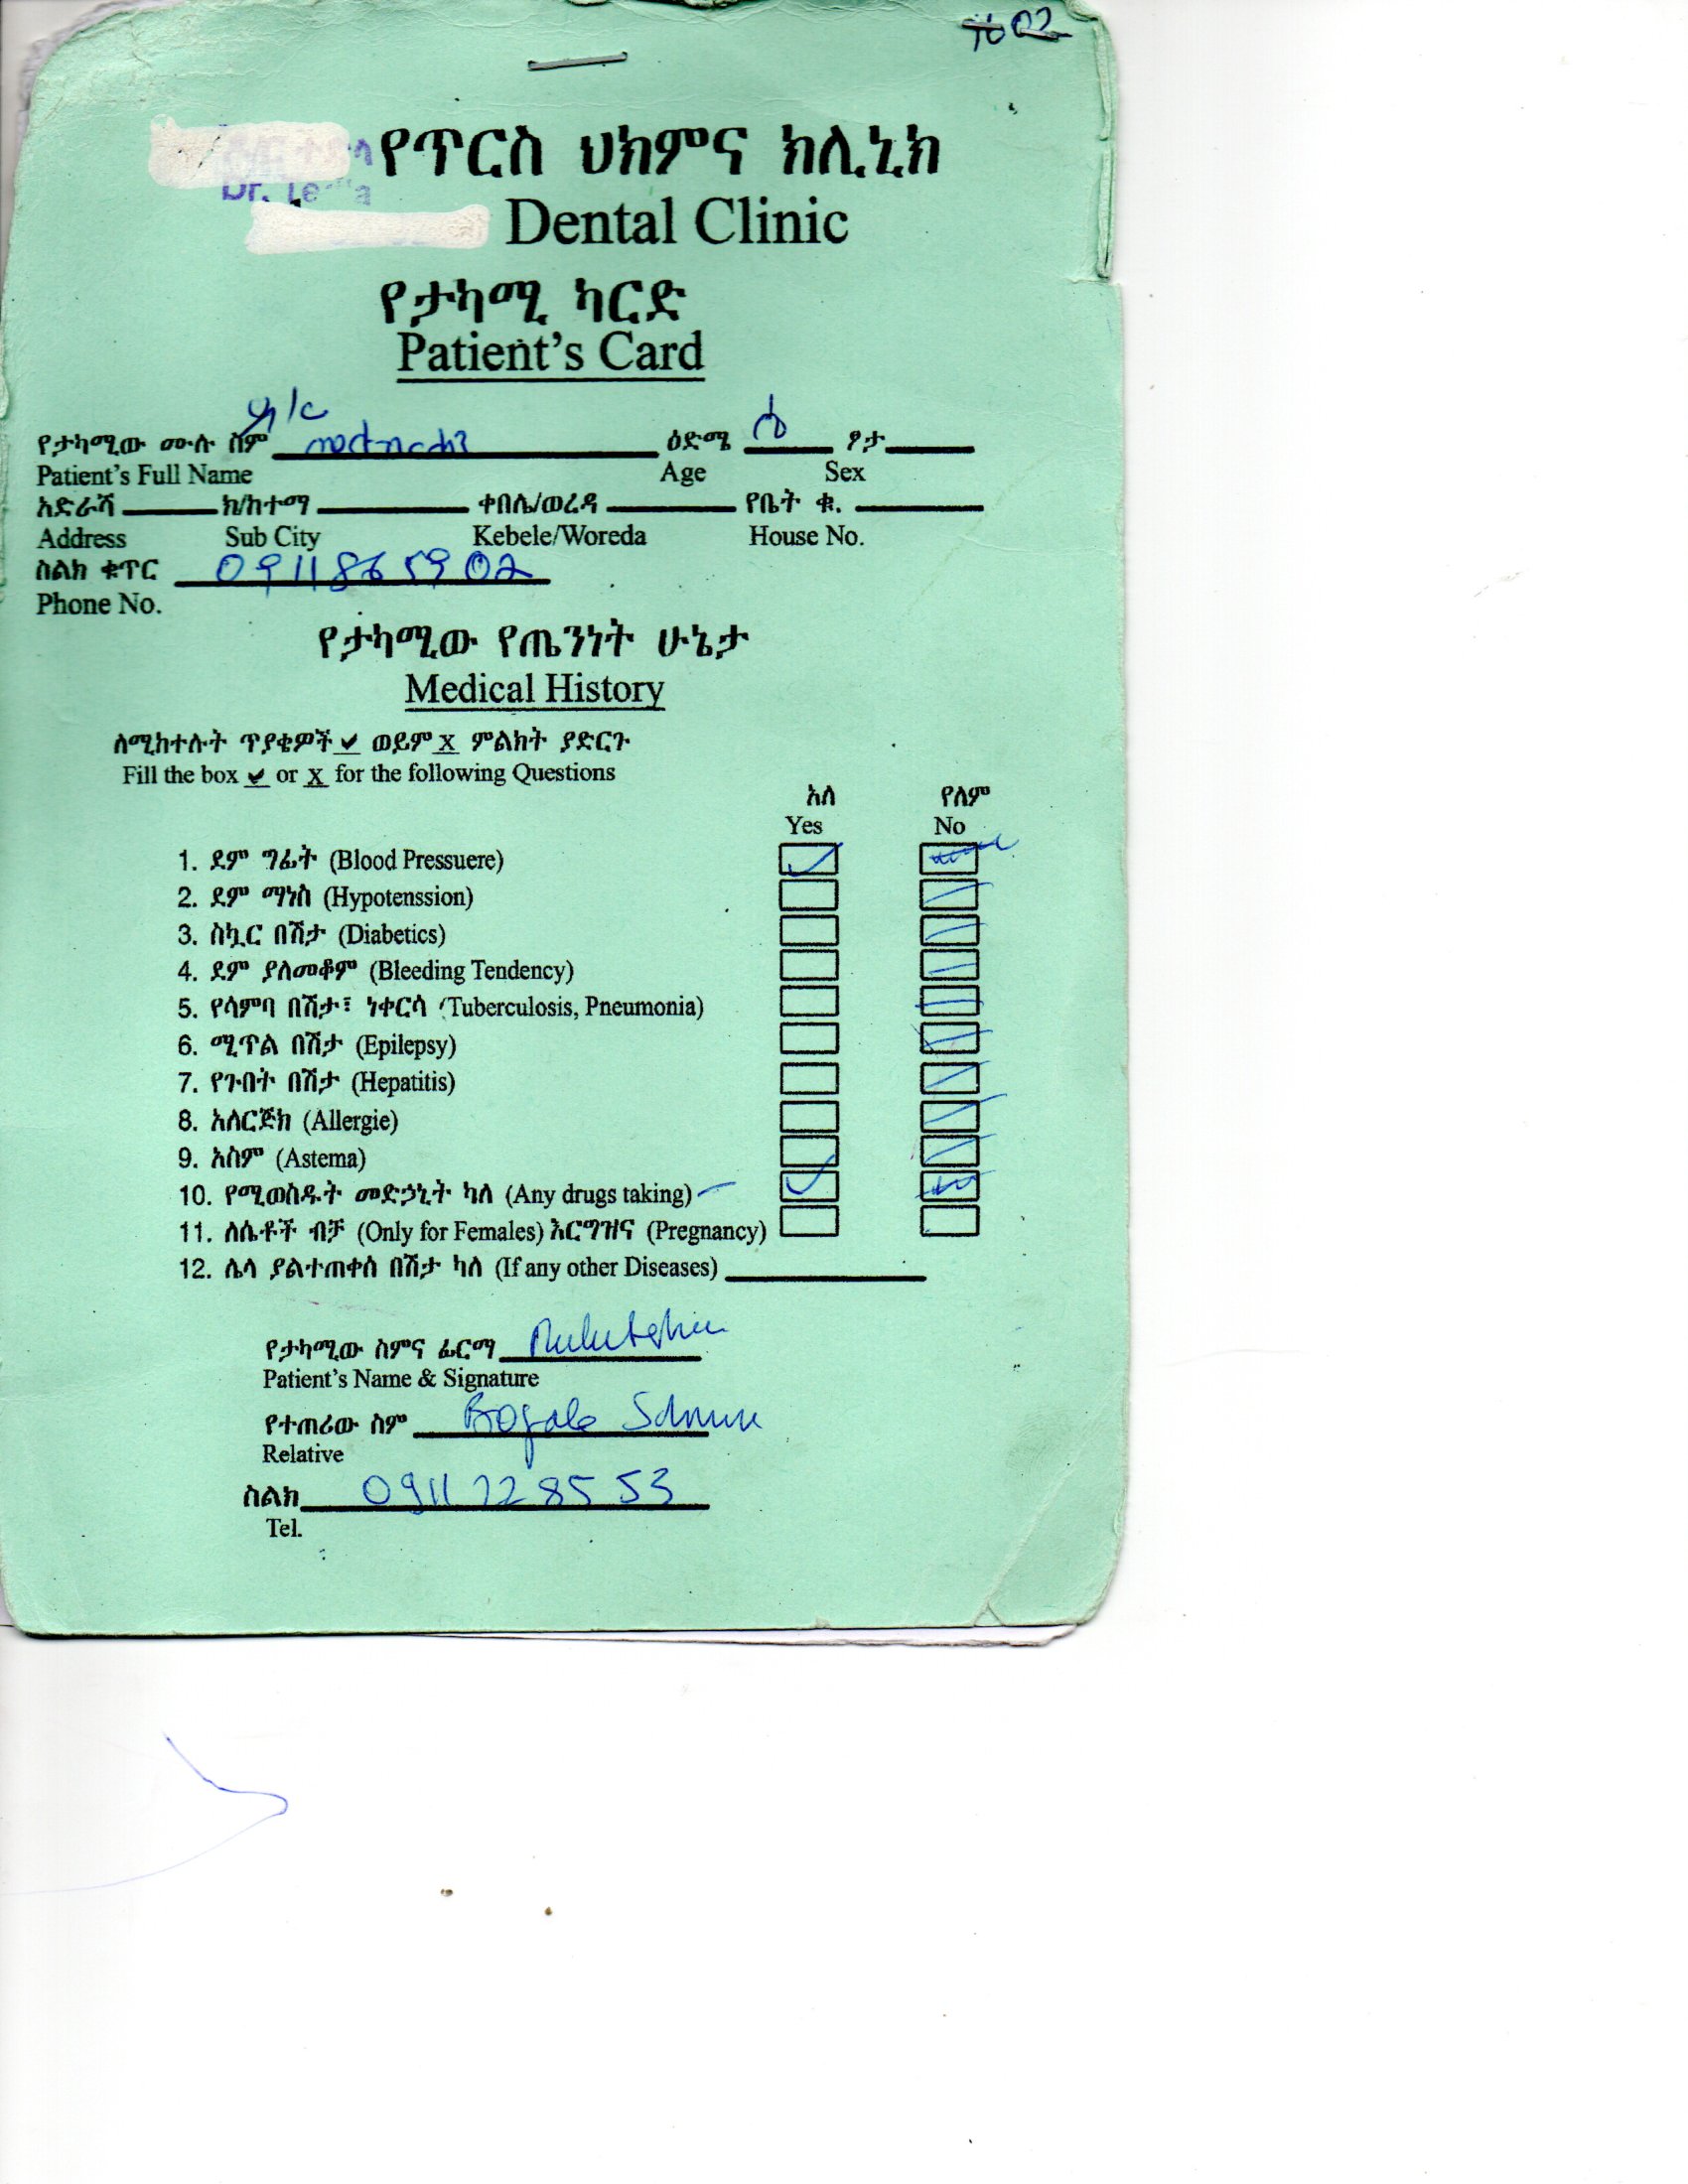 02
የጥርስ ህክምና ክሊኒክ
Dr.
Dental Clinic
የታካሚ ካርድ
Patient's Card
የታካሚው ሙሉ ስም ዕድሜ ፆታ
Patient's Full Name Age Sex
አድራሻ ክ/ከተማ ቀበሌ/ወረዳ የቤት ቁ.
Address Sub City Kebele/Woreda House No.
ስልክ ቁጥር 0911865902
Phone No.
የታካሚው የጤንነት ሁኔታ
Medical History
ለሚከተሉት ጥያቄዎች ✔ ወይም X ምልክት ያድርጉ
Fill the box ✔ or X for the following Questions
አለ የለም
Yes No
1. ደም ግፊት (Blood Pressuere)
2. ደም ማነስ (Hypotenssion)
3. ስኳር በሽታ (Diabetics)
4. ደም ያለመቆም (Bleeding Tendency)
5. የሳምባ በሽታ፣ ነቀርሳ (Tuberculosis, Pneumonia)
6. ሚጥል በሽታ (Epilepsy)
7. የጉበት በሽታ (Hepatitis)
8. አለርጅክ (Allergie)
9. አስም (Astema)
10. የሚወስዱት መድኃኒት ካለ (Any drugs taking)
11. ለሴቶች ብቻ (Only for Females) እርግዝና (Pregnancy)
12. ሌላ ያልተጠቀሰ በሽታ ካለ (If any other Diseases)
የታካሚው ስምና ፊርማ
Patient's Name & Signature
የተጠሪው ስም Bogale
Relative
ስልክ 0911228553
Tel.